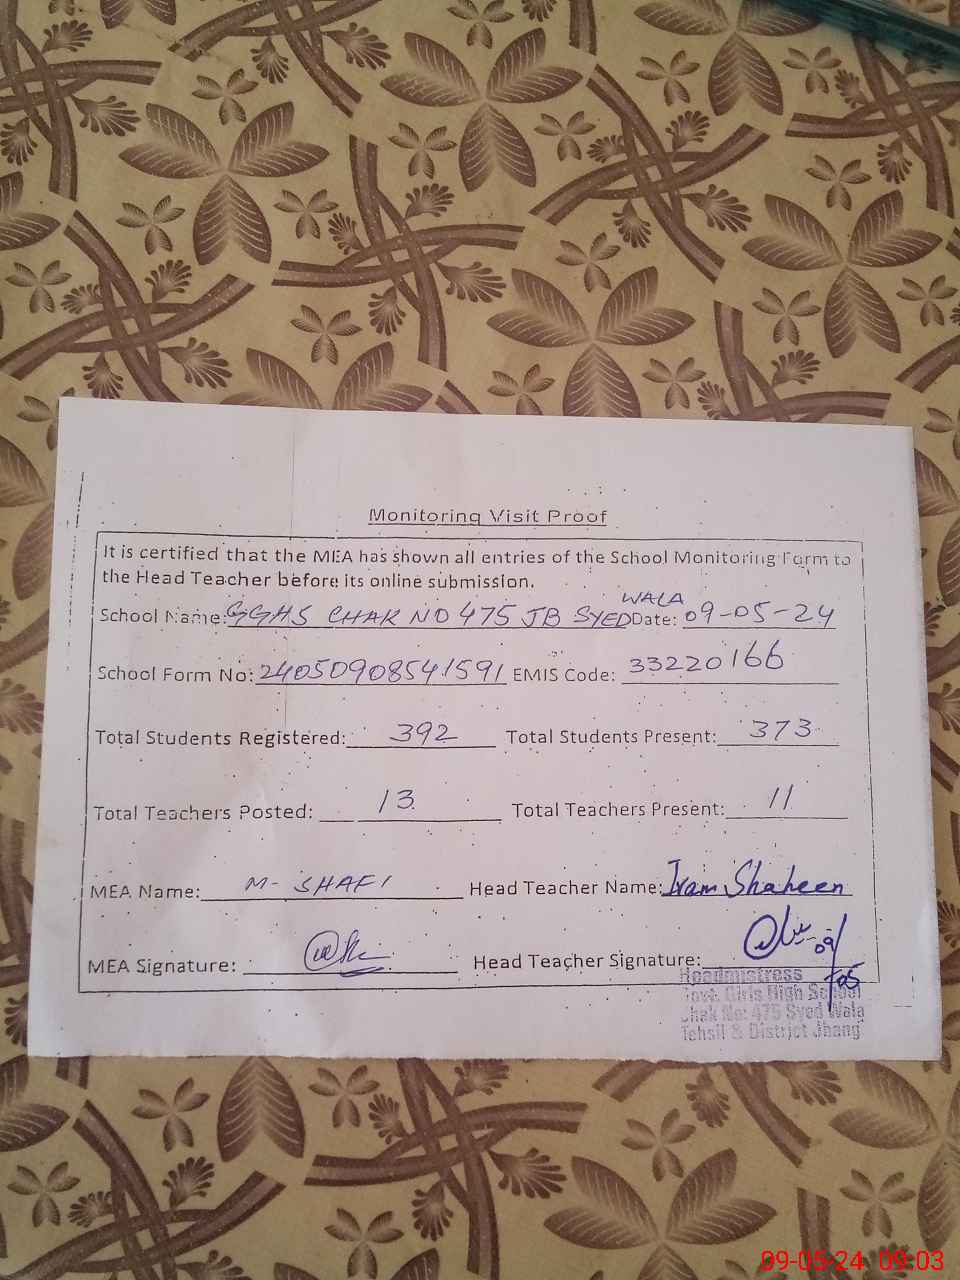 Monitoring Visit Proof
It is certified that the MEA has shown all entries of the School Monitoring Form to
the Head Teacher before its online submission.
School Name: GGHS CHAK NO 475 JB SYED WALA Date: 09-05-24
School Form No: 24050908541591 EMIS Code: 33220166
Total Students Registered: 392 Total Students Present: 373
Total Teachers Posted: 13 Total Teachers Present: 11
MEA Name: M-SHAFI Head Teacher Name: Iram Shaheen
MEA Signature: Head Teacher Signature: 09/05
Headmistress
Govt. Girls High School
Chak No: 475 Syed Wala
Tehsil & District Jhang
09-05-24 09:03